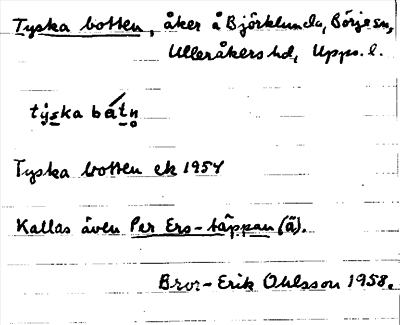 Tyska botten, åker å Björklunda, Börje sn,
Ulleråkers hd, Upps. l.
tyska bátn̥
Tyska botten ek 1957
Kallas även Per Ers-täppan (ä).
Bror-Erik Ohlsson 1958.